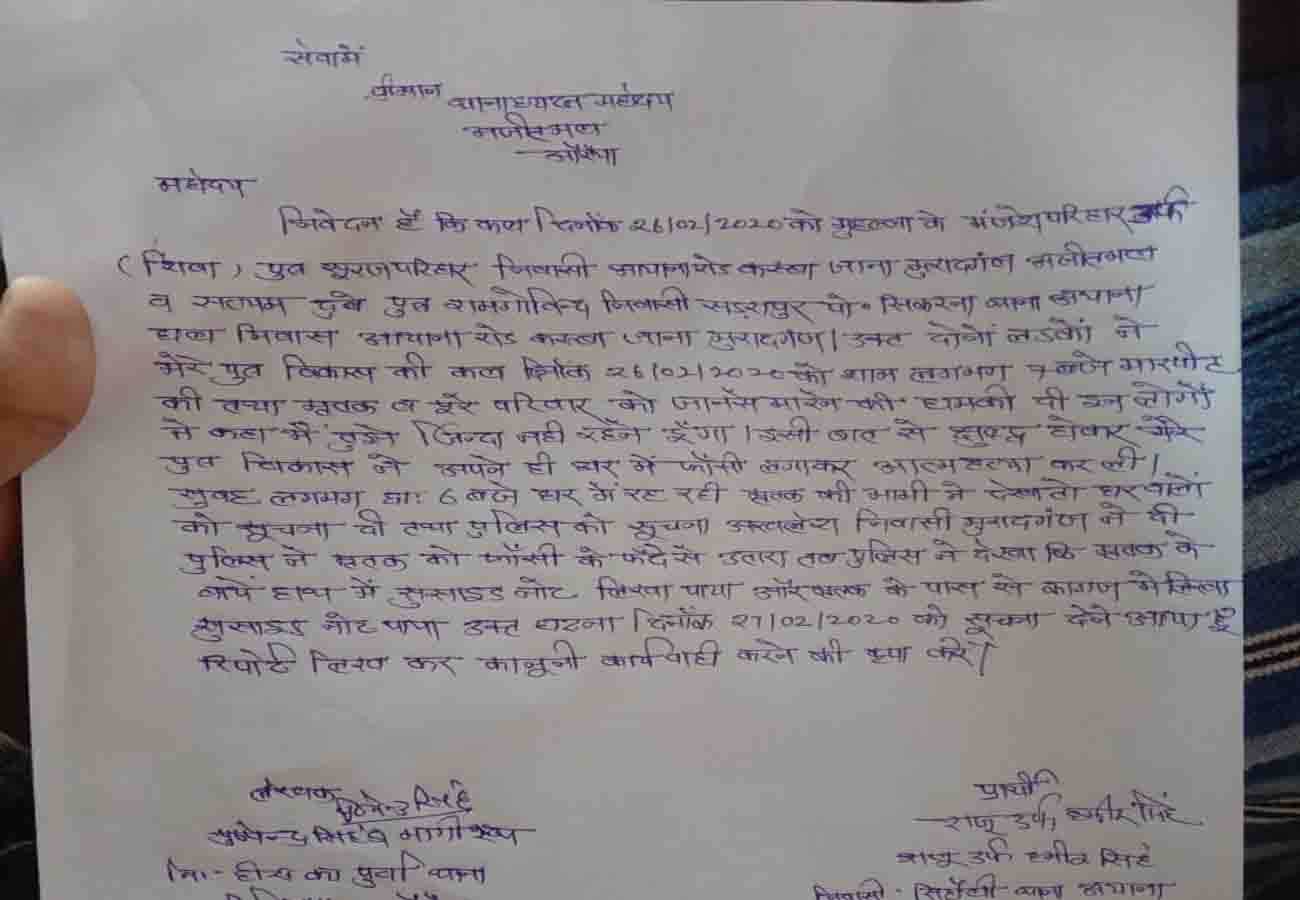 सेवामें
श्रीमान थानाध्यक्ष महोदय
अजीतमल
औरैया
महोदय
निवेदन है कि कल दिनाँक 26/02/2020 को मुहल्ला के मंजेश परिहार उर्फ
(शिवा) पुत्र सूरज परिहार निवासी अयाना रोड कस्बा जाना मुरादगंज अजीतमल
व सत्यम दुबे पुत्र रामगोविन्द निवासी पो॰ सिकरना थाना अयाना
हाल निवास अयाना रोड कस्बा जाना मुरादगंज। उक्त दोनों लडकों ने
मेरे पुत्र विकास की कल दिनाँक 26/02/2020 को शाम लगभग 7 बजे मारपीट
की तथा मृतक व पूरे परिवार को जानसे मारने की धमकी दी इन लोगों
ने कहा मैं तुझे जिन्दा नही रहने दूँगा। इसी बात से क्षुब्द होकर मेरे
पुत्र विकास ने अपने ही घर में फाँसी लगाकर आत्महत्या कर ली।
सुबह लगभग प्रा: 6 बजे घर में रह रही मृतक की भाभी ने देखा तो घर वालों
को सूचना दी तथा पुलिस को सूचना निवासी मुरादगंज ने दी
पुलिस ने मृतक को फाँसी के फंदे से उतारा तब पुलिस ने देखा कि मृतक के
बायें हाथ में सुसाइड नोट लिखा पाया और मृतक के पास से कागज में लिखा
सुसाइड नोट पाया उक्त घटना दिनाँक 27/02/2020 को सूचना देने आया हूँ
रिपोर्ट लिख कर कानूनी कार्यवाही करने की कृपा करें।
लेखक
प्रार्थी
राजू उर्फ हमीर सिंह
राजू उर्फ हमीर सिंह
नि:- का पुर्वा थाना
निवासी - थाना अयाना